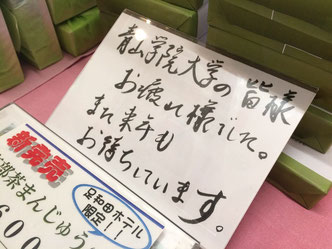 青山学院大学の皆様
お疲れ様でした。
また来年も
お待ちしています。
新発売
足和田ホテル
限定!!
茶まんじゅう
600